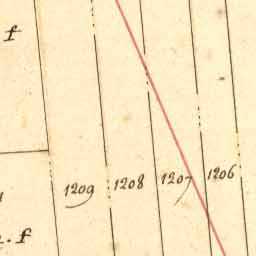 f
1209 1208 1207 1206
. f